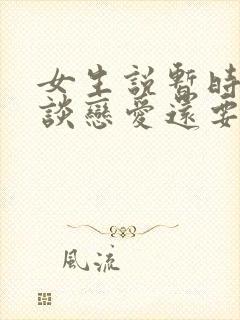 女生説暫時
談戀愛還要
風流